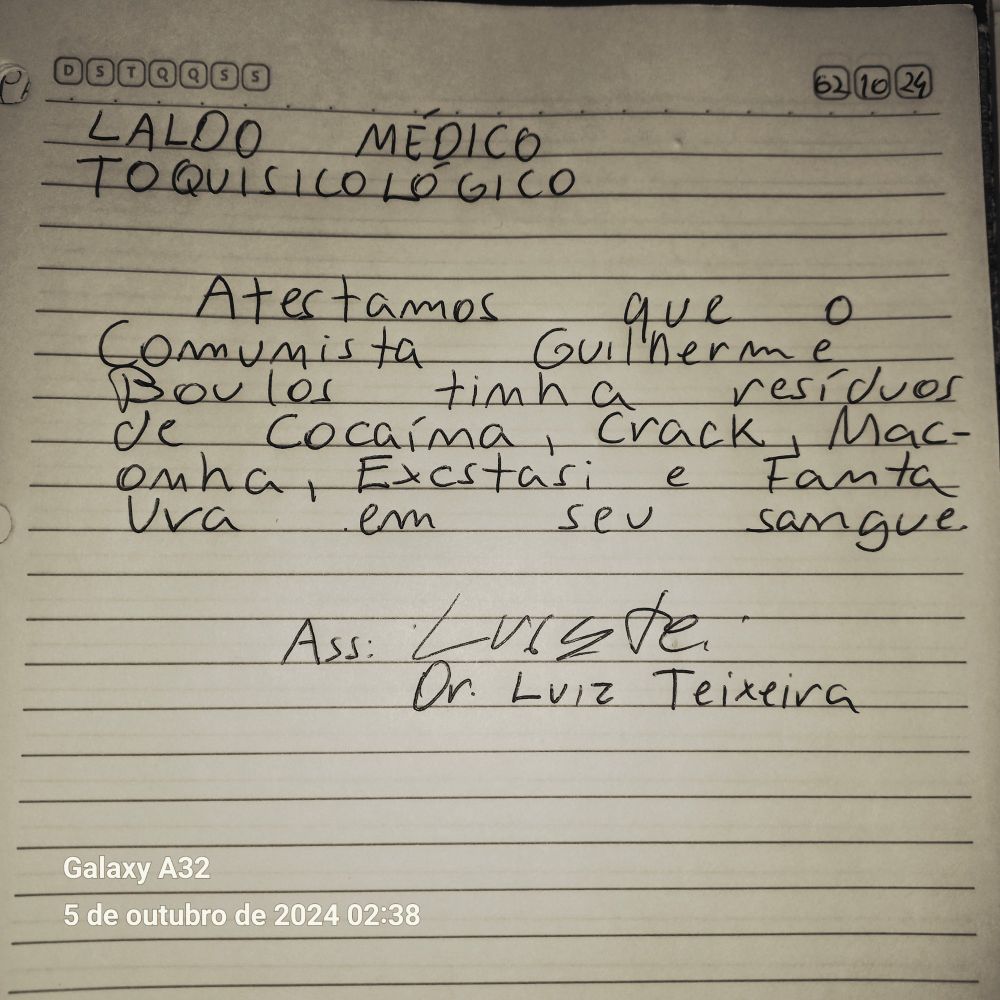 D S T Q Q S S
02 10 24
LALDO MÉDICO
TOQUISICOLÓGICO
Atestamos que o
Comumista Guilherme
Boulos timha resíduos
de Cocaíma, Crack, Mac-
omha, Excstasi e Famta
Uva em seu samgue.
Ass:
Dr. Luiz Teixeira
Galaxy A32
5 de outubro de 2024 02:38